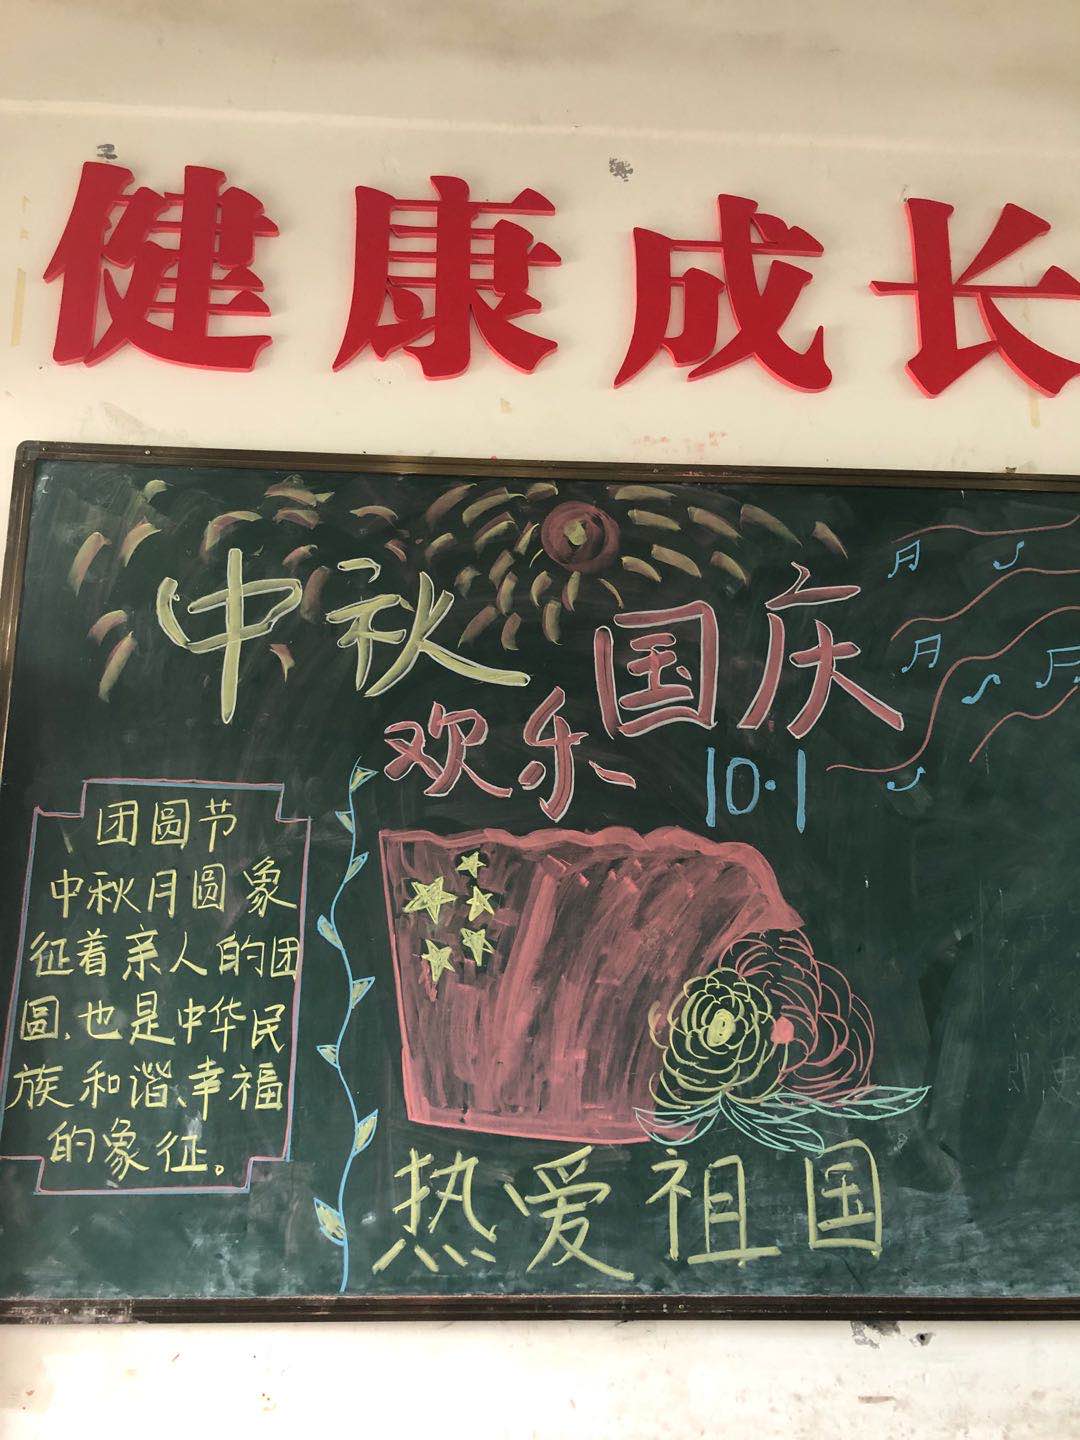 健康成长
中秋国庆
欢乐
10.1
团圆节
中秋月圆象
征着亲人的团
圆、也是中华民
族和谐、幸福
的象征。
热爱祖国